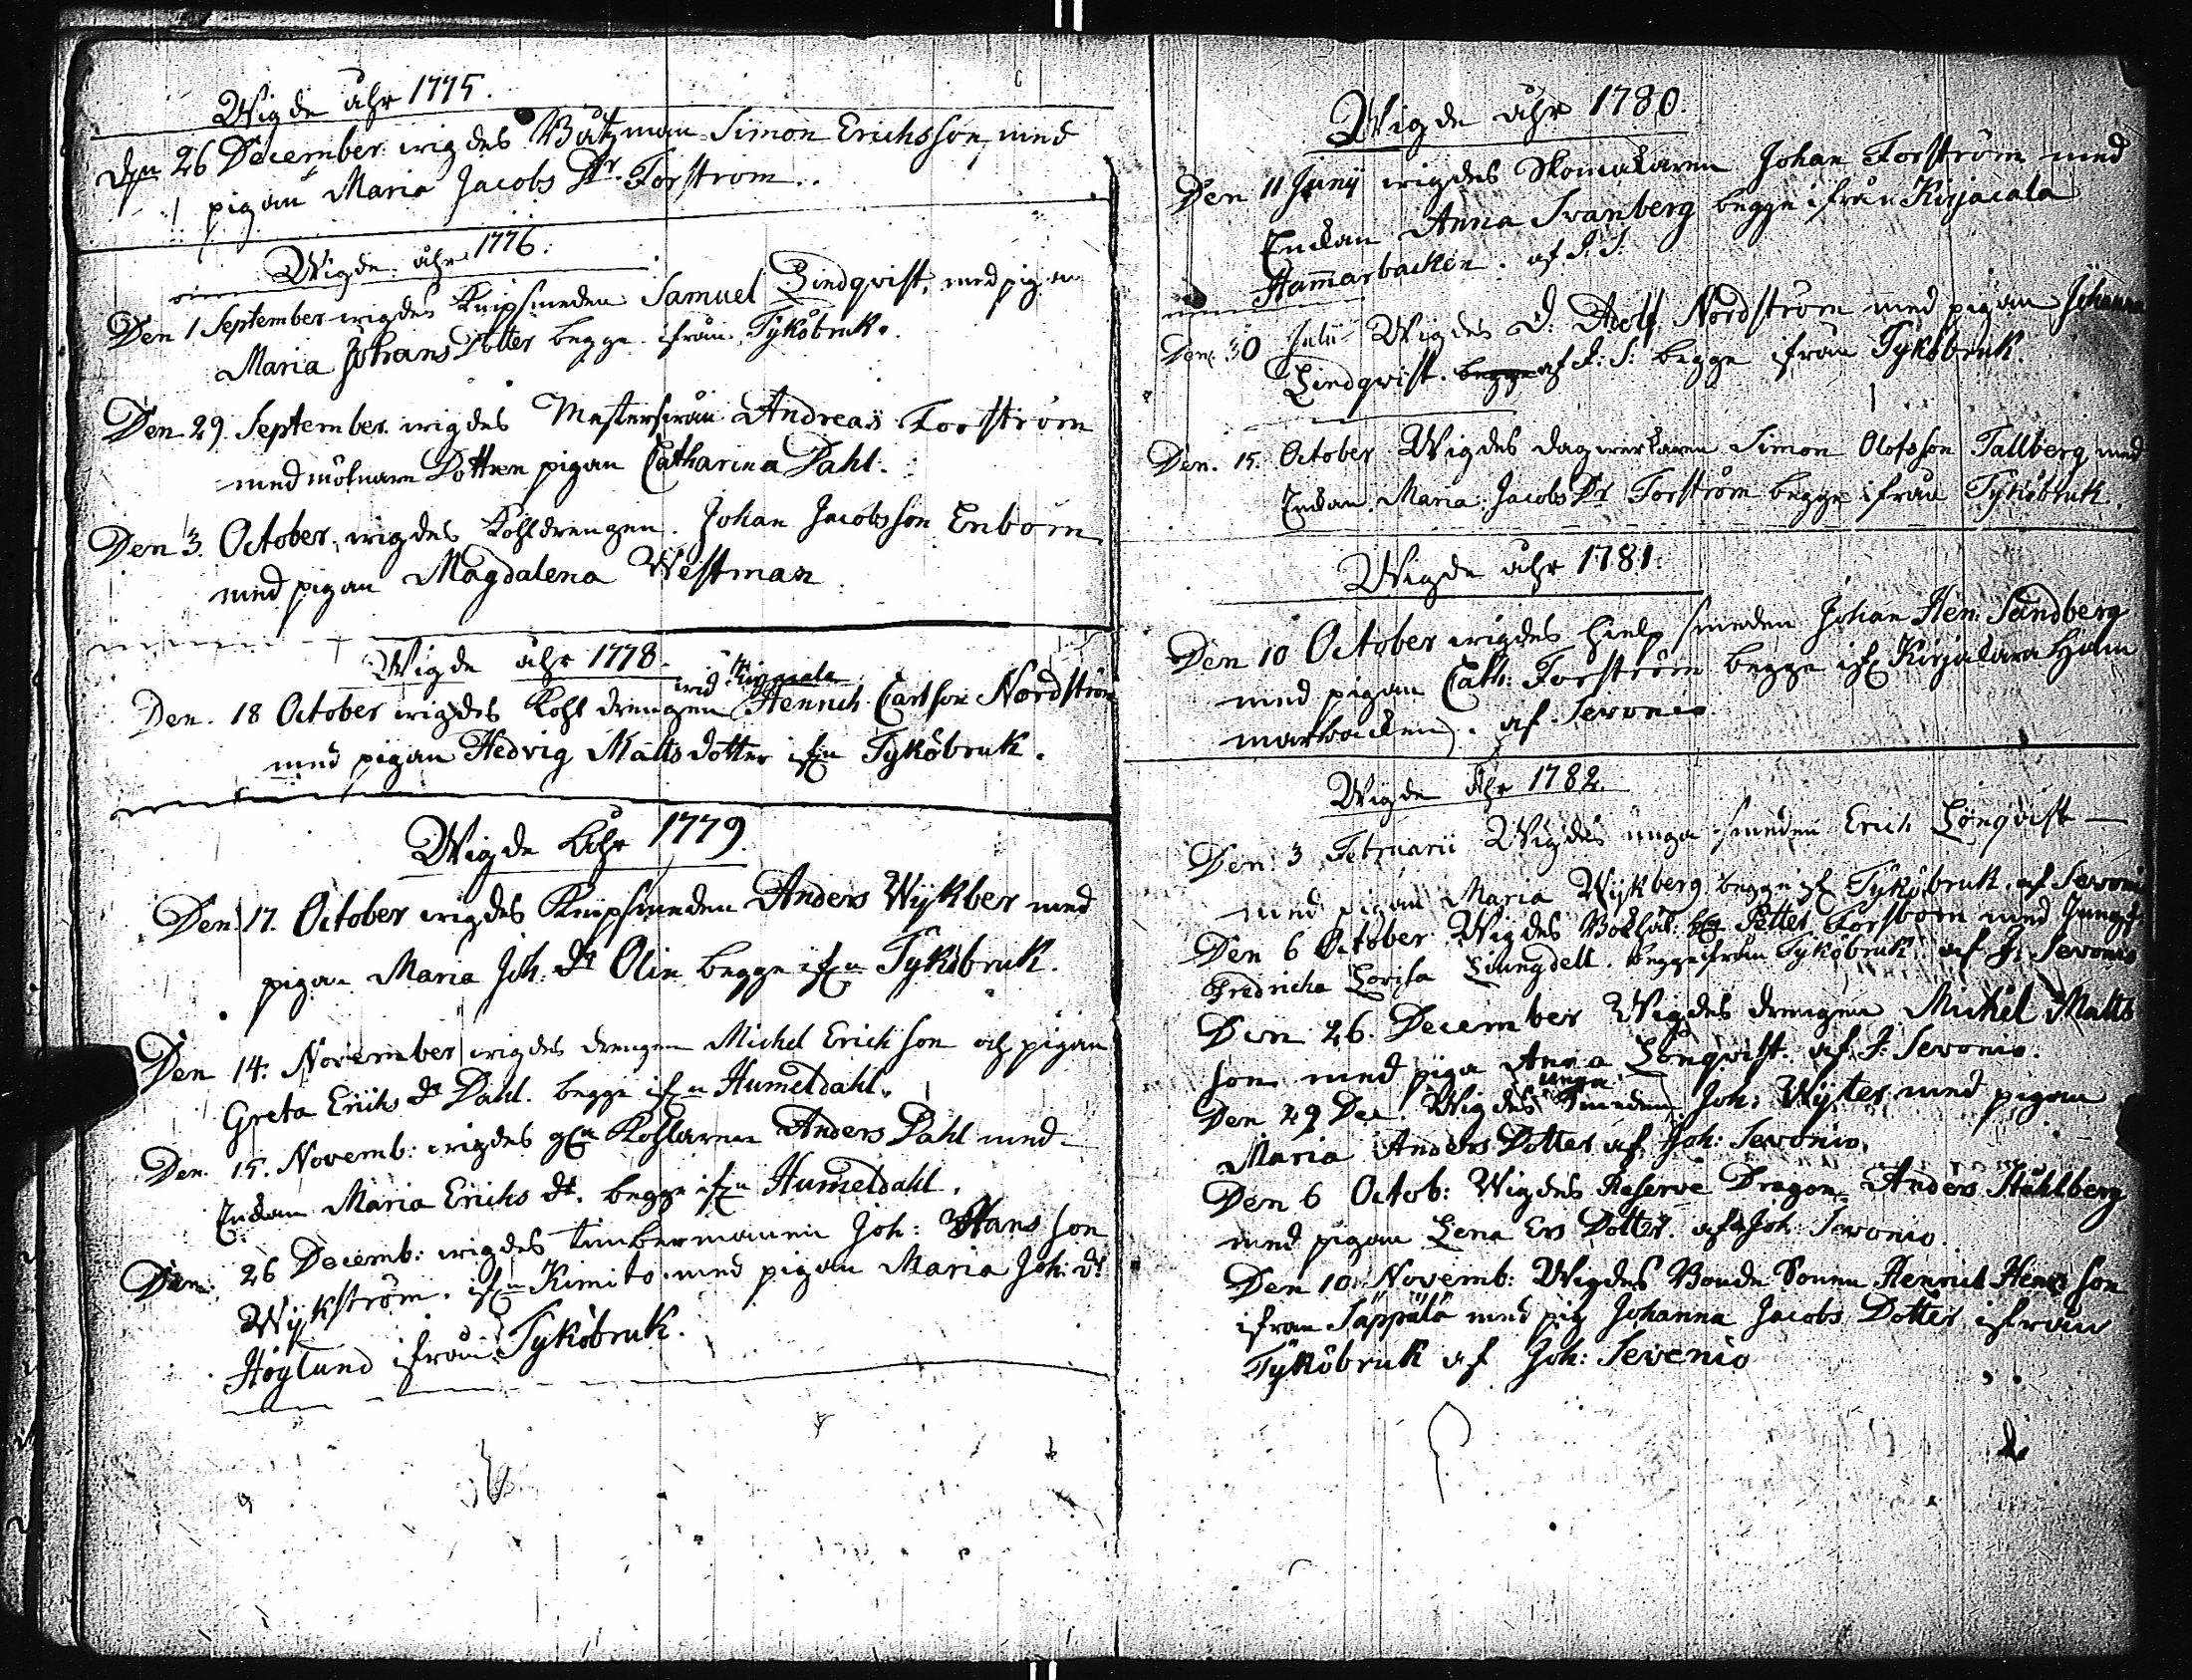 Wigde åhr 1775.
Den 26 December wigdes Båtzman Simon Erichsson, med
pigan Maria Jacobs Dr. Forström.
Wigde åhr 1776.
Den 1 September wigdes Knipsmeden Samuel Lindqvist, med pigan
Maria Johans Dotter begge ifrån Tyköbruk.
Den 29. September wigdes Mestersven Andreas Forström
med mölnare Dottren pigan Catharina Dahl.
Den 3. October, wigdes Kohldrengen Johan Jacobsson Enbom
med pigan Magdalena Westman
Wigde åhr 1778.
wid Kiggaala
Den. 18 October wigdes Kohl drengen Henrich Carlsson Nordström
med pigan Hedvig Matts dotter ifrn Tyköbruk.
Wigde åhr 1779.
Den 17. October wigdes Knipsmeden Anders Wykber med
pigan Maria Joh. dr Olin begge ifrn Tyköbruk.
Den 14. November wigdes drengen Michel Erich son och pigan
Greta Erichs dr Dahl. begge ifrn Humeldahl.
Den. 15. Novemb: wigdes Kohlaren Anders Dahl med
Enkan Maria Erichs dr. begge ifrn Humeldahl.
Den. 26 Decemb: wigdes timbermannen Joh: Hans son
Wykström. ifrn Kimito. med pigan Maria Joh: dr
Höglund ifrån Tyköbruk.
Wigde åhr 1780.
Den 11 Junij wigdes Skomakaren Johan Forström med
Enkan Anna Svanberg begge ifrån Kirjacala
Hammarbacken. af J. S.
Den 30 Julii Wigdes D: Adolf Nordström med pigan Johanna
Lindqvist. begge af J: S: begge ifrån Tyköbruk.
Den. 15. October Wigdes dagwerkaren Simon Olofsson Tallberg med
Enkan Maria Jacobs Dr Forström begge ifrån Tyköbruk.
Wigde åhr 1781.
Den 10 October wigdes hielp smeden Johan Hen: Sandberg
med pigan Cath: Forström begge ifr Kirjakala Ham
marbacken. af Sevonio
Wigde Åhr 1782.
Den 3 Februarii Wigdes unga smeden Erich Lönqvist
med pigan Maria Wykberg begge ifr Tyköbruk. af Sevonio
Den 6 October Wigdes Bokhål: Petter Forsbom med Jungfr
Fredricha Lovisa Liungdell. begge ifrån Tyköbruk af J: Sevonio
Den 26. December Wigdes drengen Michel Matts
son med piga Anna Lönqvist. af J: Sevonio.
unga
Den 29 Dec. Wigdes Smeden Joh: Wyter med pigan
Maria Anders Dotter af Joh: Sevonio.
Den 6 Octob: Wigdes Reserve Dragon Anders Ståhlberg
med pigan Lena Ers Dotter. af Joh: Sevonio.
Den 10. Novemb: Wigdes Bonde Sonen Henrich Henrs son
ifrån Säppälä med pig Johanna Jacobs Dotter ifrån
Tyköbruk af Joh: Sevonio